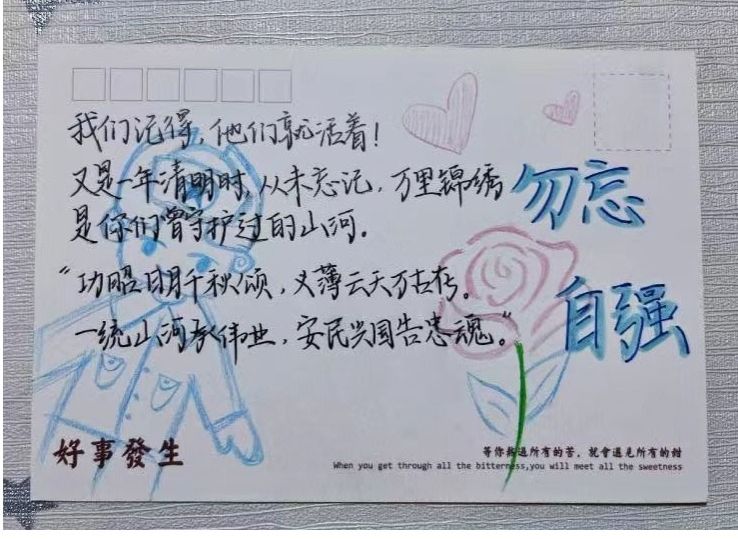 我们记得，他们就活着！
又是一年清明时，从未忘记，万里锦绣
是你们曾守护过的山河。
“功昭日月千秋颂，义薄云天万古存。
一统山河承伟业，安民兴国告忠魂。”
勿忘
自强
好事發生
等你熬過所有的苦，就會遇見所有的甜
When you get through all the bitterness,you will meet all the sweetness